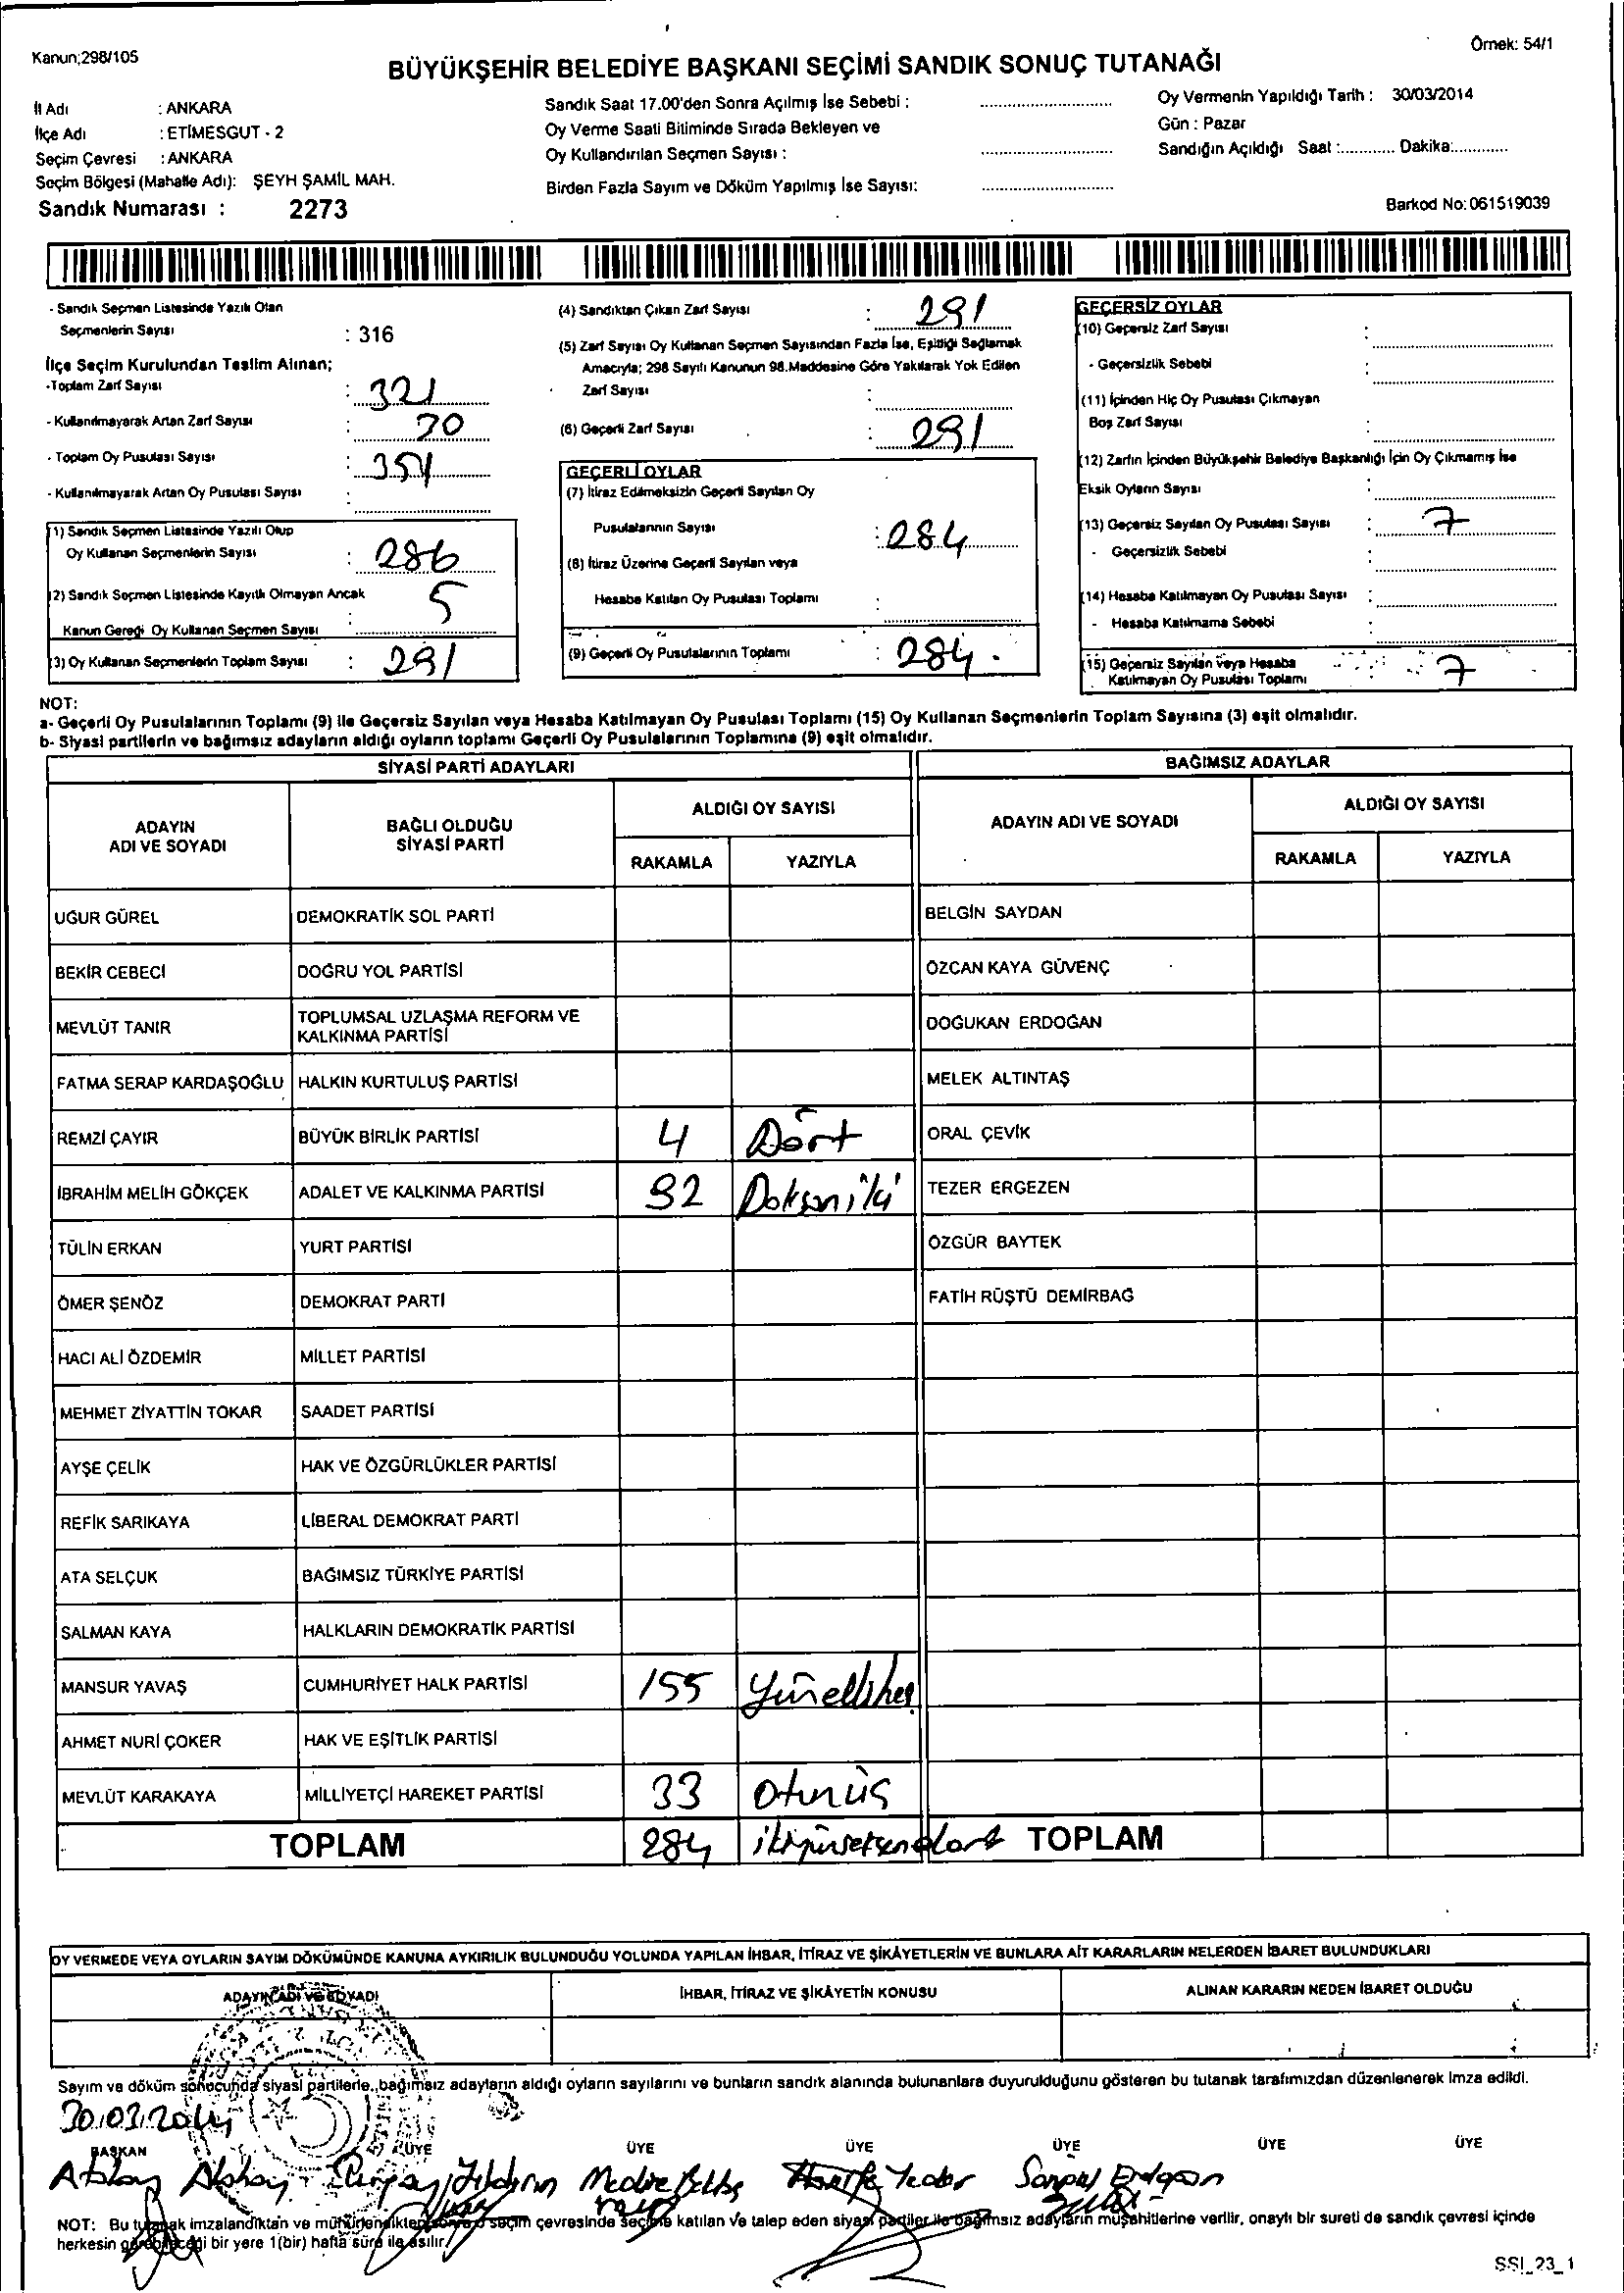 Kanun;298/105
Örnek: 54/1
BÜYÜKŞEHİR BELEDİYE BAŞKANI SEÇİMİ SANDIK SONUÇ TUTANAĞI
İl Adı : ANKARA
İlçe Adı : ETİMESGUT - 2
Seçim Çevresi : ANKARA
Seçim Bölgesi (Mahalle Adı): ŞEYH ŞAMİL MAH.
Sandık Numarası : 2273
Sandık Saat 17.00'den Sonra Açılmış İse Sebebi :
Oy Verme Saati Bitiminde Sırada Bekleyen ve
Oy Kullandırılan Seçmen Sayısı :
Birden Fazla Sayım ve Döküm Yapılmış İse Sayısı:
Oy Vermenin Yapıldığı Tarih : 30/03/2014
Gün : Pazar
Sandığın Açıldığı Saat :............ Dakika:............
Barkod No: 061519039
- Sandık Seçmen Listesinde Yazılı Olan
Seçmenlerin Sayısı : 316
İlçe Seçim Kurulundan Teslim Alınan;
-Toplam Zarf Sayısı : 321
- Kullanılmayarak Artan Zarf Sayısı : 70
- Toplam Oy Pusulası Sayısı : 351
- Kullanılmayarak Artan Oy Pusulası Sayısı :
(1) Sandık Seçmen Listesinde Yazılı Olup
Oy Kullanan Seçmenlerin Sayısı : 286
(2) Sandık Seçmen Listesinde Kayıtlı Olmayan Ancak
Kanun Gereği Oy Kullanan Seçmen Sayısı : 5
(3) Oy Kullanan Seçmenlerin Toplam Sayısı : 291
(4) Sandıktan Çıkan Zarf Sayısı : 291
(5) Zarf Sayısı Oy Kullanan Seçmen Sayısından Fazla İse, Eşitliği Sağlamak
Amacıyla; 298 Sayılı Kanunun 98.Maddesine Göre Yakılarak Yok Edilen
Zarf Sayısı :
(6) Geçerli Zarf Sayısı : 291
GEÇERLİ OYLAR
(7) İtiraz Edilmeksizin Geçerli Sayılan Oy
Pusulalarının Sayısı : 284
(8) İtiraz Üzerine Geçerli Sayılan veya
Hesaba Katılan Oy Pusulası Toplamı :
(9) Geçerli Oy Pusulalarının Toplamı : 284
GEÇERSİZ OYLAR
(10) Geçersiz Zarf Sayısı :
- Geçersizlik Sebebi :
(11) İçinden Hiç Oy Pusulası Çıkmayan
Boş Zarf Sayısı :
(12) Zarfın İçinden Büyükşehir Belediye Başkanlığı İçin Oy Çıkmamış İse
Eksik Oyların Sayısı :
(13) Geçersiz Sayılan Oy Pusulası Sayısı : 7
- Geçersizlik Sebebi :
(14) Hesaba Katılmayan Oy Pusulası Sayısı :
- Hesaba Katılmama Sebebi :
(15) Geçersiz Sayılan veya Hesaba
Katılmayan Oy Pusulası Toplamı : 7
NOT:
a- Geçerli Oy Pusulalarının Toplamı (9) ile Geçersiz Sayılan veya Hesaba Katılmayan Oy Pusulası Toplamı (15) Oy Kullanan Seçmenlerin Toplam Sayısına (3) eşit olmalıdır.
b- Siyasi partilerin ve bağımsız adayların aldığı oyların toplamı Geçerli Oy Pusulalarının Toplamına (9) eşit olmalıdır.
SİYASİ PARTİ ADAYLARI
BAĞIMSIZ ADAYLAR
ADAYIN ADI VE SOYADI
BAĞLI OLDUĞU SİYASİ PARTİ
ALDIĞI OY SAYISI
RAKAMLA YAZIYLA
ADAYIN ADI VE SOYADI
ALDIĞI OY SAYISI
RAKAMLA YAZIYLA
UĞUR GÜREL DEMOKRATİK SOL PARTİ BELGİN SAYDAN
BEKİR CEBECİ DOĞRU YOL PARTİSİ ÖZCAN KAYA GÜVENÇ
MEVLÜT TANIR TOPLUMSAL UZLAŞMA REFORM VE KALKINMA PARTİSİ DOĞUKAN ERDOĞAN
FATMA SERAP KARDAŞOĞLU HALKIN KURTULUŞ PARTİSİ MELEK ALTINTAŞ
REMZİ ÇAYIR BÜYÜK BİRLİK PARTİSİ 4 Dört ORAL ÇEVİK
İBRAHİM MELİH GÖKÇEK ADALET VE KALKINMA PARTİSİ 92 Doksaniki TEZER ERGEZEN
TÜLİN ERKAN YURT PARTİSİ ÖZGÜR BAYTEK
ÖMER ŞENÖZ DEMOKRAT PARTİ FATİH RÜŞTÜ DEMİRBAĞ
HACI ALİ ÖZDEMİR MİLLET PARTİSİ
MEHMET ZİYATTİN TOKAR SAADET PARTİSİ
AYŞE ÇELİK HAK VE ÖZGÜRLÜKLER PARTİSİ
REFİK SARIKAYA LİBERAL DEMOKRAT PARTİ
ATA SELÇUK BAĞIMSIZ TÜRKİYE PARTİSİ
SALMAN KAYA HALKLARIN DEMOKRATİK PARTİSİ
MANSUR YAVAŞ CUMHURİYET HALK PARTİSİ 155 Yüzellibeş
AHMET NURİ ÇOKER HAK VE EŞİTLİK PARTİSİ
MEVLÜT KARAKAYA MİLLİYETÇİ HAREKET PARTİSİ 33 Otuzüç
TOPLAM 284 ikiyüzseksendört TOPLAM
OY VERMEDE VEYA OYLARIN SAYIM DÖKÜMÜNDE KANUNA AYKIRILIK BULUNDUĞU YOLUNDA YAPILAN İHBAR, İTİRAZ VE ŞİKÂYETLERİN VE BUNLARA AİT KARARLARIN NELERDEN İBARET BULUNDUKLARI
ADAYIN ADI VE SOYADI
İHBAR, İTİRAZ VE ŞİKÂYETİN KONUSU
ALINAN KARARIN NEDEN İBARET OLDUĞU
Sayım ve döküm sonucunda siyasi partilerle, bağımsız adayların aldığı oyların sayılarını ve bunların sandık alanında bulunanlara duyurulduğunu gösteren bu tutanak tarafımızdan düzenlenerek imza edildi.
30.03.2014
BAŞKAN ÜYE ÜYE ÜYE ÜYE ÜYE ÜYE
NOT: Bu tutanak imzalandıktan ve mühürlendikten sonra o seçim çevresinde seçime katılan ve talep eden siyasi partiler ile bağımsız adayların müşahitlerine verilir, onaylı bir sureti de sandık çevresi içinde
herkesin görebileceği bir yere 1(bir) hafta süre ile asılır.
SSI_23_1